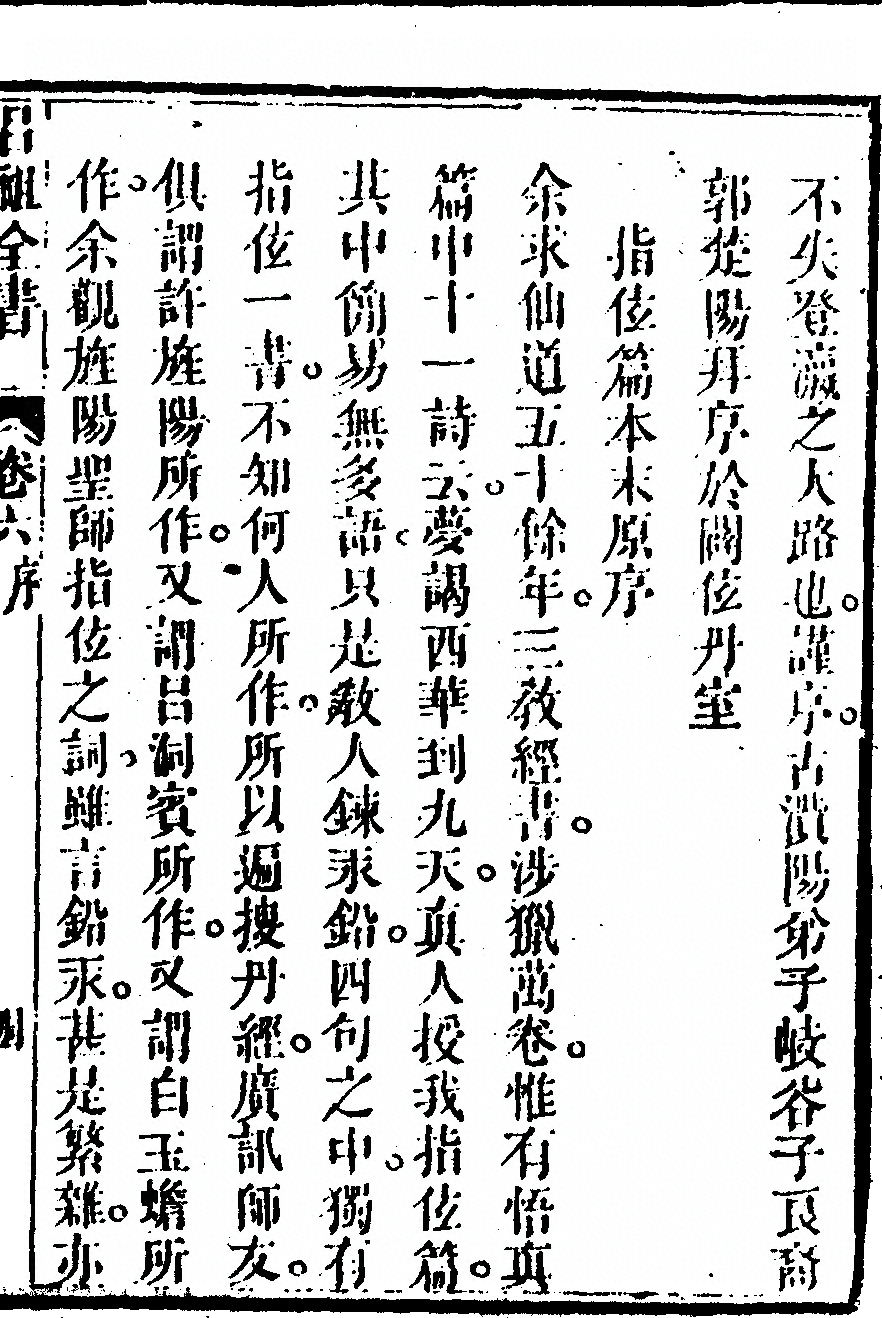 不失登瀛之大路也。謹序。古濮陽弟子岐谷子良裔
郭楚陽拜序於闢位丹室
指位篇本末原序
余求仙道五十餘年。三教經書。涉獵萬卷。惟有悟真
篇中十一詩云。夢謁西華到九天。真人授我指位篇。
其中簡易無多語。只是敎人鍊汞鉛。四句之中。獨有
指位一書。不知何人所作。所以遍搜丹經。廣訊師友。
俱謂許旌陽所作。又謂呂洞賓所作。又謂白玉蟾所
作。余觀旌陽聖師指位之詞。雖言鉛汞。甚是繁雜。亦
呂祖全書 卷六 序